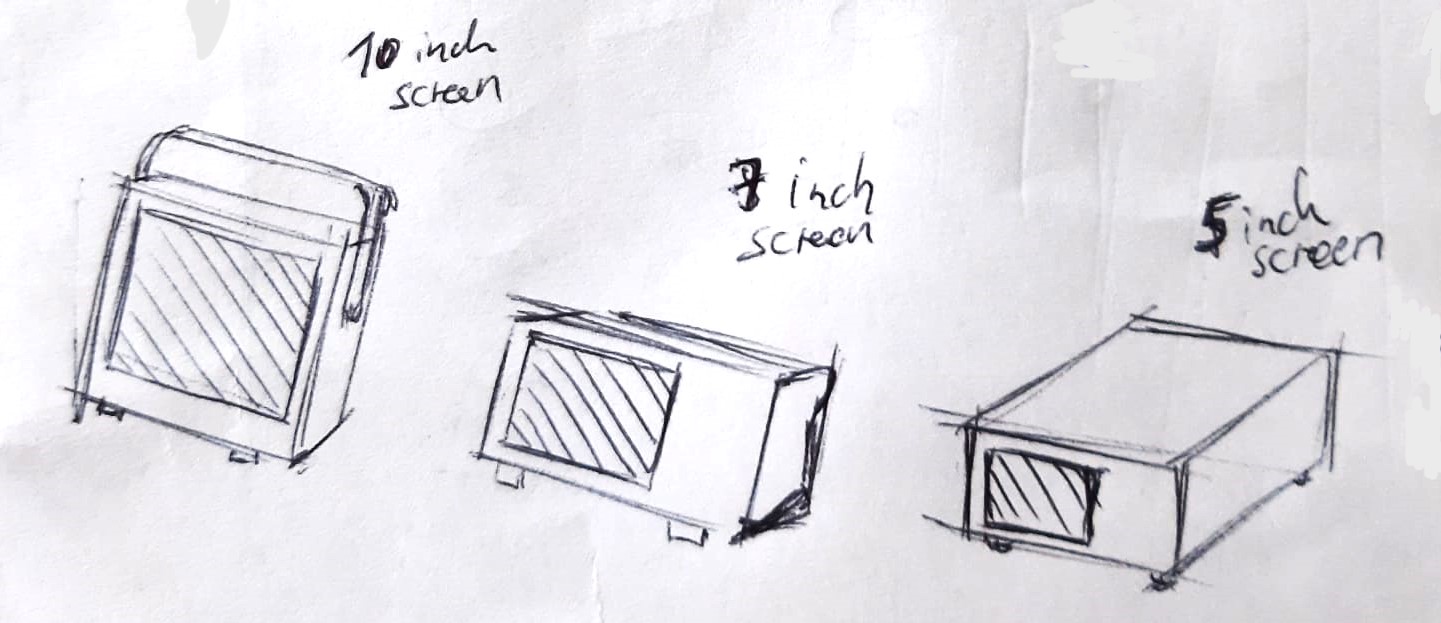 10 inch
screen
7 inch
screen
5 inch
screen